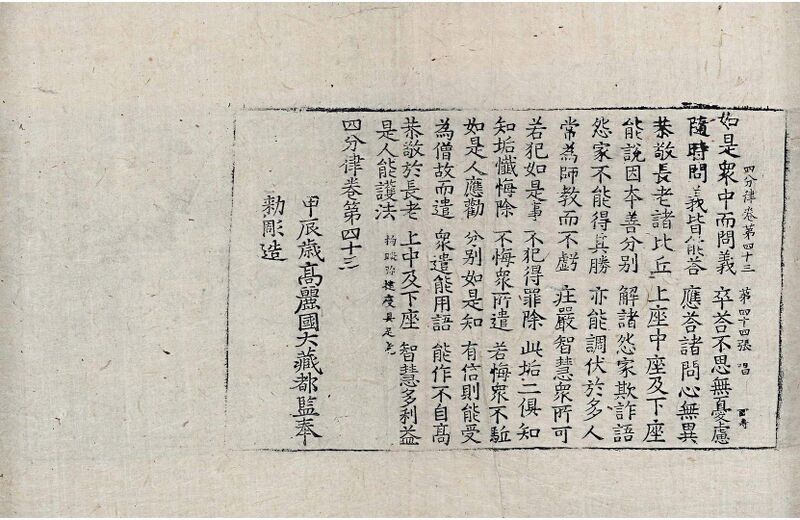 四分律卷第四十三 第四十四張 唱
如是衆中而問義 卒荅不思無憂慮
隨時問義皆能荅 應荅諸問心無異
恭敬長老諸比丘 上座中座及下座
能說因本善分別 解諸怨家欺詐語
怨家不能得其勝 亦能調伏於多人
常為師教而不虧 庄嚴智慧衆所可
若犯如是事 不犯得罪除 此垢二俱知
知垢懺悔除 不悔衆所遣 若悔衆不駈
如是人應勸 分別如是知 有信則能受
為僧故而遣 衆遣能用語 能作不自高
恭敬於長老 上中及下座 智慧多利益
是人能護法 拘睒弥揵度具足竟
四分律卷第四十三
甲辰歲高麗國大藏都監奉
勑彫造